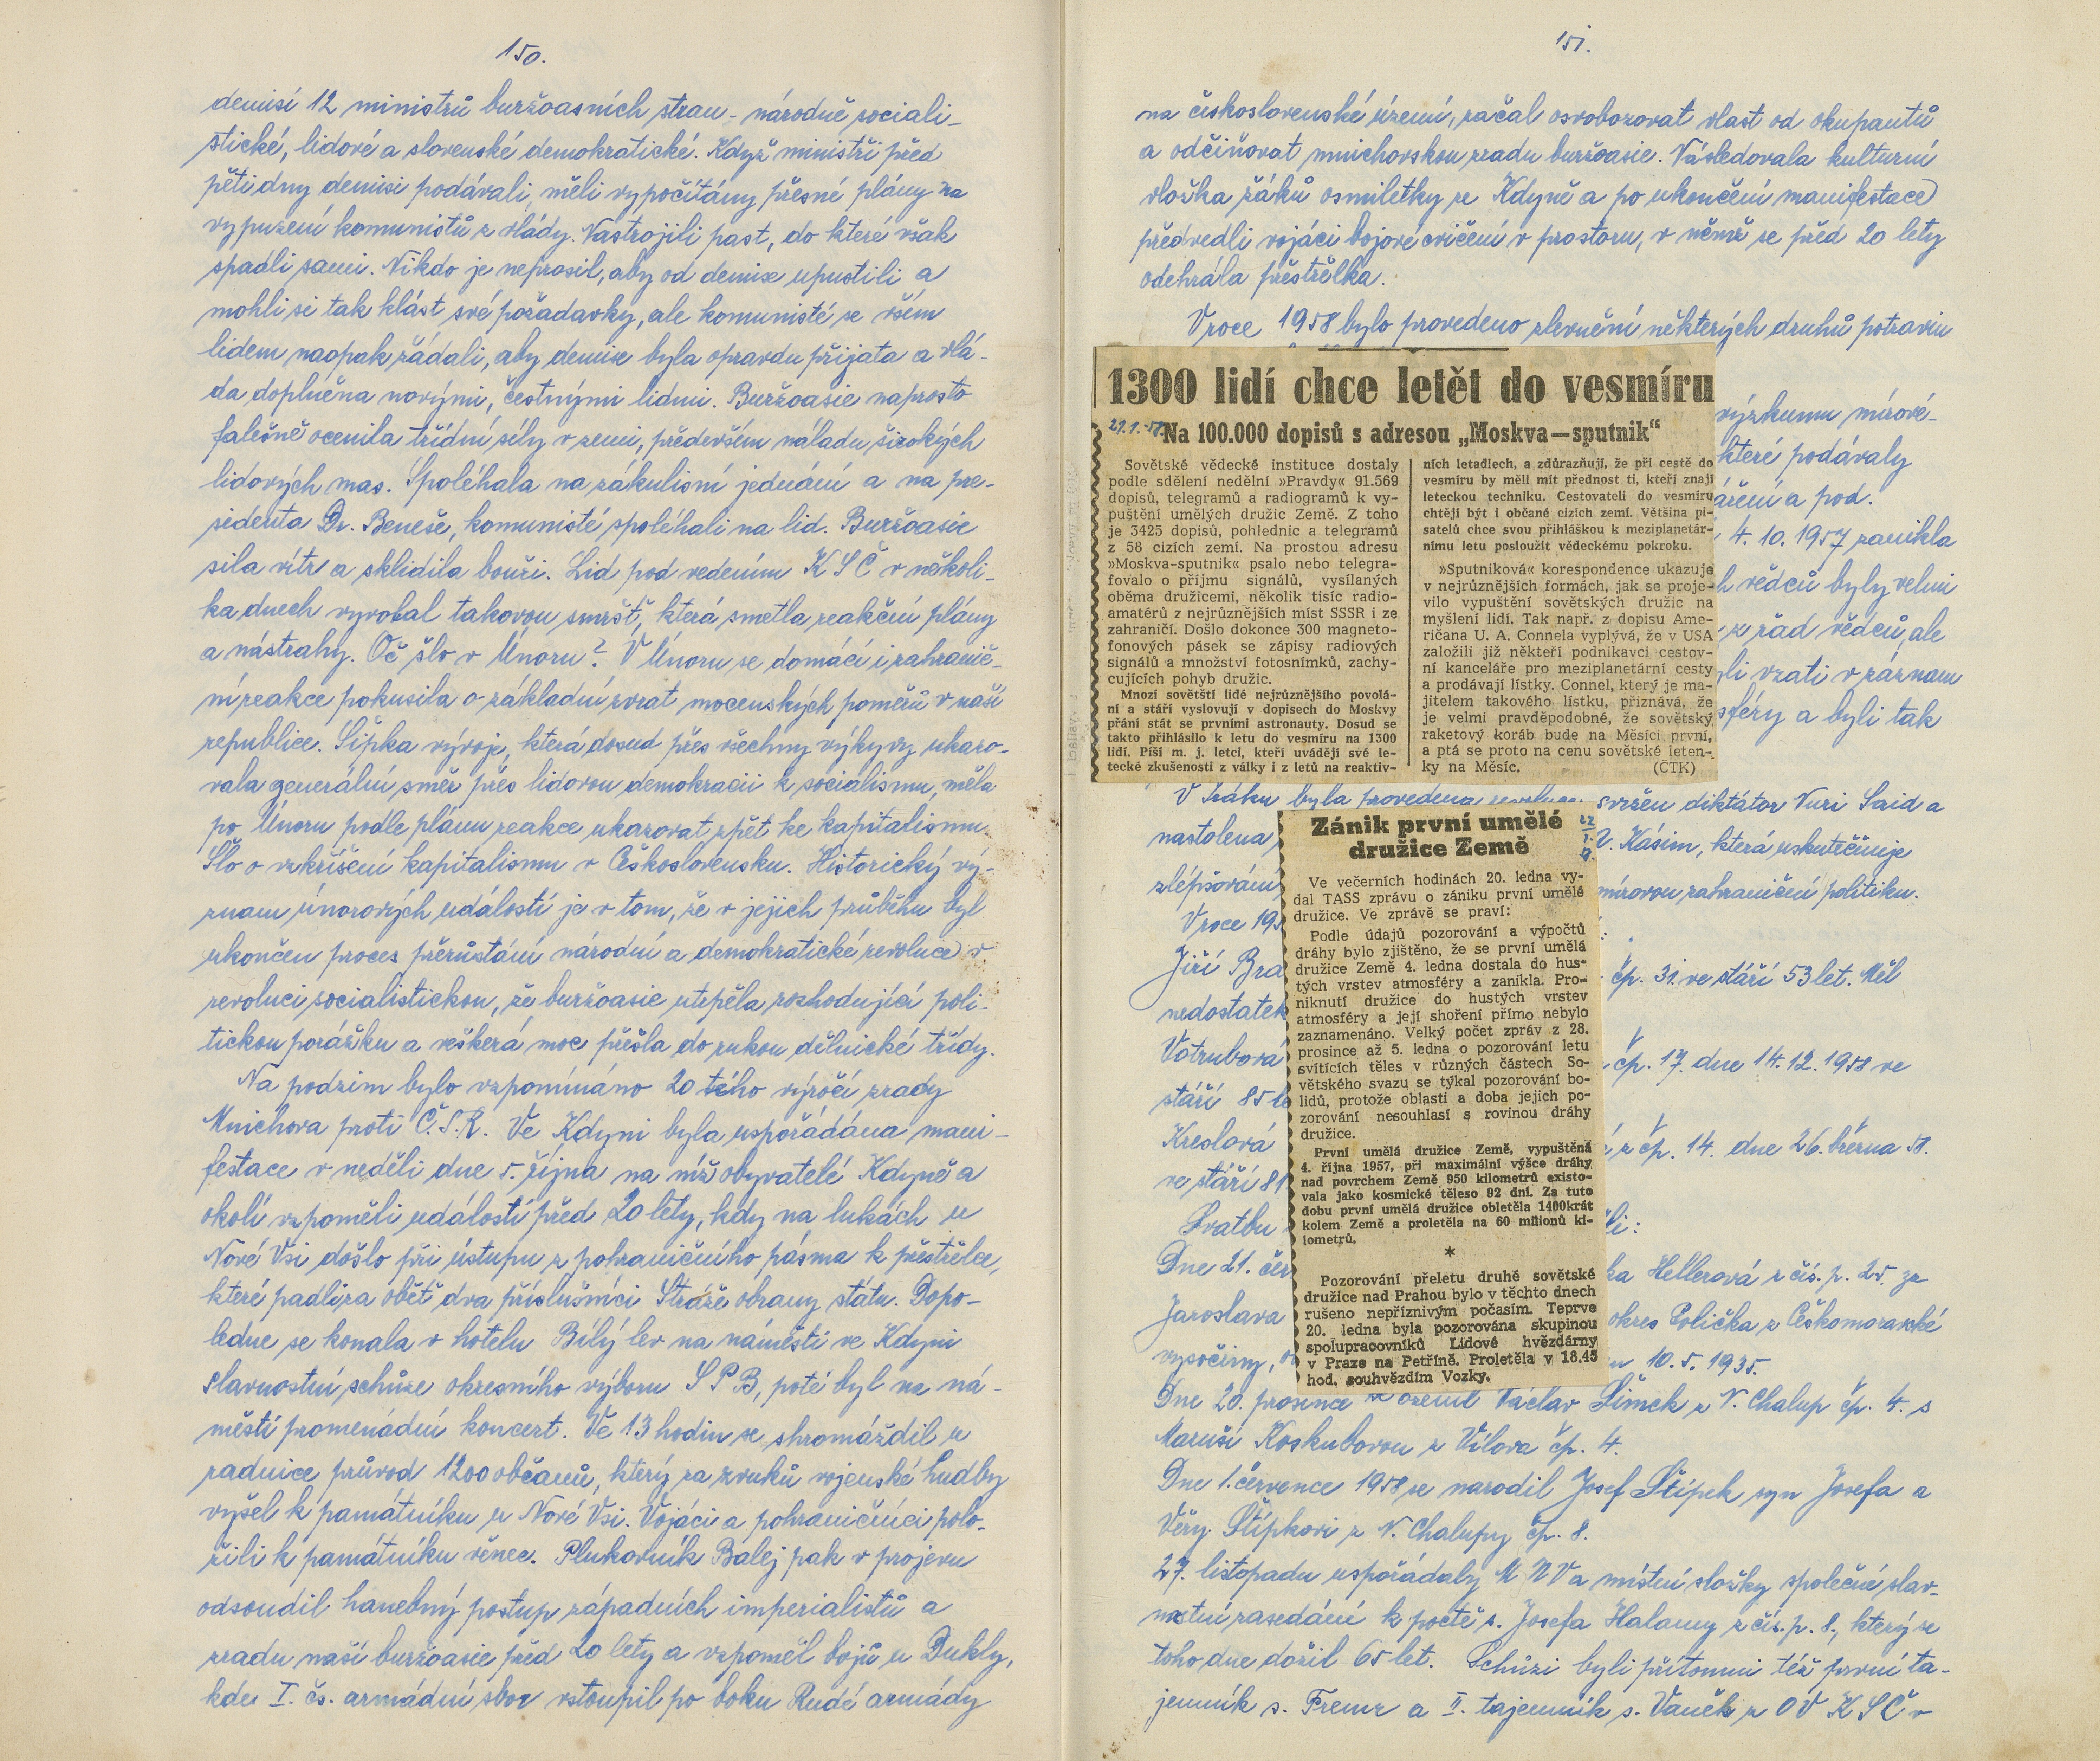 150.
demisí 12 ministrů buržoasních stran - národně sociali-
stické, lidové a slovenské demokratické. Když ministři před
pěti dny demisi podávali, měli vypočítány přesné plány na
vypuzení komunistů z vlády. Nastrojili past, do které však
spadli sami. Nikdo je neprosil, aby od demise upustili a
mohli si tak klást své požadavky, ale komunisté se vším
lidem naopak žádali, aby demise byla opravdu přijata a vlá-
da doplněna novými, čestnými lidmi. Buržoasie naprosto
falešně ocenila třídní síly v zemi, především náladu širokých
lidových mas. Spoléhala na zákulisní jednání a na pre-
sidenta Dr. Beneše, komunisté spoléhali na lid. Buržoasie
sila vítr a sklidila bouři. Lid pod vedením KSČ v několi-
ka dnech vyvolal takovou smršť, která smetla reakční plány
a nástrahy. Oč šlo v Únoru? V Únoru se domácí i zahranič-
ní reakce pokusila o základní zvrat mocenských poměrů v naší
republice. Šipka vývoje, která dosud přes všechny výkyvy ukazo-
vala generální směr přes lidovou demokracii k socialismu, měla
po Únoru podle plánu reakce ukazovat zpět ke kapitalismu.
Šlo o vzkříšení kapitalismu v Československu. Historický vý-
znam únorových událostí je v tom, že v jejich průběhu byl
ukončen proces přerůstání národní a demokratické revoluce v
revoluci socialistickou, že buržoasie utrpěla rozhodující poli-
tickou porážku a veškerá moc přešla do rukou dělnické třídy.
Na podzim bylo vzpomínáno 20 tého výročí zrady
Mnichova proti Č.S.R. Ve Kdyni byla uspořádána mani-
festace v neděli dne 5. října na níž obyvatelé Kdyně a
okolí vzpoměli událostí před 20 lety, kdy na lukách u
Nové Vsi došlo při ústupu z pohraničního pásma k přestřelce,
které padli za oběť dva příslušníci Stráže obrany státu. Dopo-
ledne se konala v hotelu Bílý lev na náměstí ve Kdyni
slavnostní schůze okresního výboru SPB, poté byl na ná-
městí promenádní koncert. Ve 13 hodin se shromáždil u
radnice průvod 1200 občanů, který za zvuků vojenské hudby
vyšel k památníku u Nové Vsi. Vojáci a pohraničníci polo-
žili k památníku věnec. Plukovník Balej pak v projevu
odsoudil hanebný postup západních imperialistů a
zradu naší buržoasie před 20 lety a vzpoměl bojů u Dukly,
kde I. čs. armádní sbor vstoupil po boku Rudé armády
151.
na československé území, začal osvobozovat vlast od okupantů
a odčiňovat mnichovskou zradu buržoasie. Následovala kulturní
vložka žáků osmiletky ze Kdyně a po ukončení manifestace
předvedli vojáci bojové cvičení v prostoru, v němž se před 20 lety
odehrála přestřelka.
V roce 1958 bylo provedeno zlevnění některých druhů potravin
1300 lidí chce letět do vesmíru
Na 100.000 dopisů s adresou „Moskva—sputnik“
Sovětské vědecké instituce dostaly
podle sdělení nedělní »Pravdy« 91.569
dopisů, telegramů a radiogramů k vy-
puštění umělých družic Země. Z toho
je 3425 dopisů, pohlednic a telegramů
z 58 cizích zemí. Na prostou adresu
»Moskva-sputnik« psalo nebo telegra-
fovalo o příjmu signálů, vysílaných
oběma družicemi, několik tisíc radio-
amatérů z nejrůznějších míst SSSR i ze
zahraničí. Došlo dokonce 300 magneto-
fonových pásek se zápisy radiových
signálů a množství fotosnímků, zachy-
cujících pohyb družic.
Mnozí sovětští lidé nejrůznějšího povolá-
ní a stáří vyslovují v dopisech do Moskvy
přání stát se prvními astronauty. Dosud se
takto přihlásilo k letu do vesmíru na 1300
lidí. Píší m. j. letci, kteří uvádějí své le-
tecké zkušenosti z války i z letů na reaktiv-
ních letadlech, a zdůrazňují, že při cestě do
vesmíru by měli mít přednost ti, kteří znají
leteckou techniku. Cestovateli do vesmíru
chtějí být i občané cizích zemí. Většina pi-
satelů chce svou přihláškou k meziplanetár-
nímu letu posloužit vědeckému pokroku.
»Sputniková« korespondence ukazuje
v nejrůznějších formách, jak se proje-
vilo vypuštění sovětských družic na
myšlení lidí. Tak např. z dopisu Ame-
ričana U. A. Connela vyplývá, že v USA
založili již někteří podnikavci cestov-
ní kanceláře pro meziplanetární cesty
a prodávají lístky. Connel, který je ma-
jitelem takového lístku, přiznává, že
je velmi pravděpodobné, že sovětský
raketový koráb bude na Měsíci první,
a ptá se proto na cenu sovětské leten-
ky na Měsíc. (ČTK)
výzkumu mírové-
které podávaly
záření a pod.
4. 10. 1957 zanikla
vědců byly velmi
z řad vědců, ale
vzati v záznam
sféry a byli tak
V Iráku byla provedena revoluce, svržen diktátor Nuri Said a
nastolena
V. Kásim, která uskutečňuje
mírovou zahraniční politiku.
V roce 195
Jiří Bra
čp. 31. ve stáří 53 let. Měl
nedostatek
Votrubová
čp. 17. dne 14.12.1958 ve
stáří 85 le
Kreslová
z čp. 14. dne 26. března 58.
ve stáří 81
Svatbu
Dne 21. čer
ka Hellerová z čís. p. 25. za
Jaroslava
okres Polička z Českomoravské
vysočiny,
10. 5. 1935.
Zánik první umělé
družice Země
Ve večerních hodinách 20. ledna vy-
dal TASS zprávu o zániku první umělé
družice. Ve zprávě se praví:
Podle údajů pozorování a výpočtů
dráhy bylo zjištěno, že se první umělá
družice Země 4. ledna dostala do hus-
tých vrstev atmosféry a zanikla. Pro-
niknutí družice do hustých vrstev
atmosféry a její shoření přímo nebylo
zaznamenáno. Velký počet zpráv z 28.
prosince až 5. ledna o pozorování letu
svítících těles v různých částech So-
větského svazu se týkal pozorování bo-
lidů, protože oblasti a doba jejich po-
zorování nesouhlasí s rovinou dráhy
družice.
První umělá družice Země, vypuštěná
4. října 1957, při maximální výšce dráhy
nad povrchem Země 950 kilometrů existo-
vala jako kosmické těleso 92 dní. Za tuto
dobu první umělá družice obletěla 1400krát
kolem Země a proletěla na 60 milionů ki-
lometrů.
*
Pozorování přeletu druhé sovětské
družice nad Prahou bylo v těchto dnech
rušeno nepříznivým počasím. Teprve
20. ledna byla pozorována skupinou
spolupracovníků Lidové hvězdárny
v Praze na Petříně. Proletěla v 18.45
hod. souhvězdím Vozky.
Dne 20. prosince se oženil Václav Šimek z N. Chalup čp. 4. s
Maruší Koskubovou z Vílova čp. 4.
Dne 1. července 1958 se narodil Josef Štípek syn Josefa a
Věry Štípkovi z N. Chalupy čp. 8.
27. listopadu uspořádaly MNV a místní složky společné slav-
nostní zasedání k poctě s. Josefa Halamy z čís. p. 8., který se
toho dne dožil 65 let. Schůzi byli přítomni též první ta-
jemník s. Fremr a II. tajemník s. Vaněk z OV KSČ v